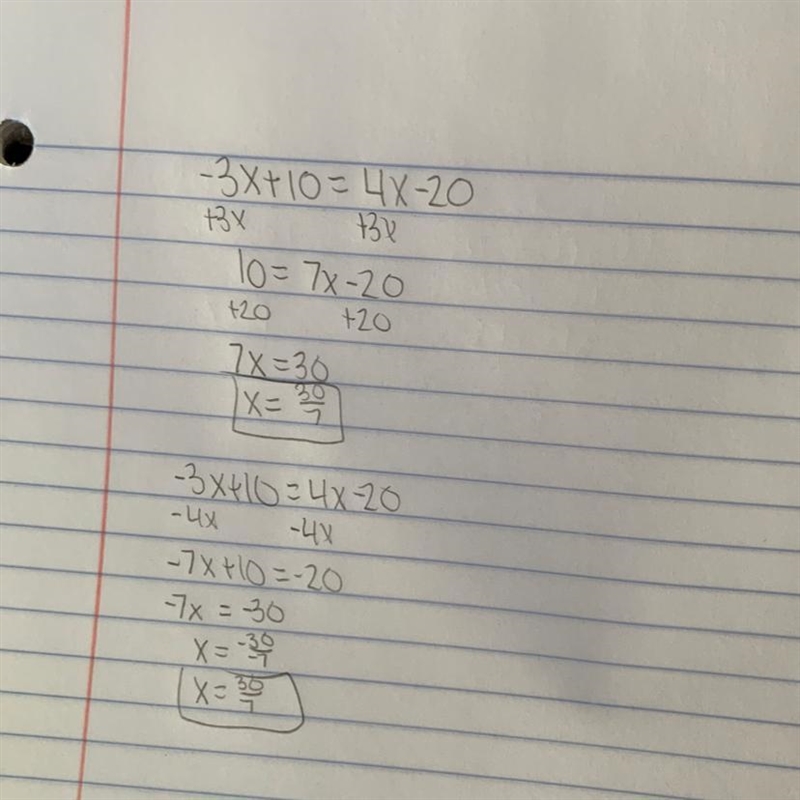 -3x+10=4x-20
+3x +3x
10=7x-20
+20 +20
7x=30
x=30/7
-3x+10=4x-20
-4x -4x
-7x+10=-20
-7x=-30
x=-30/-7
x=30/7